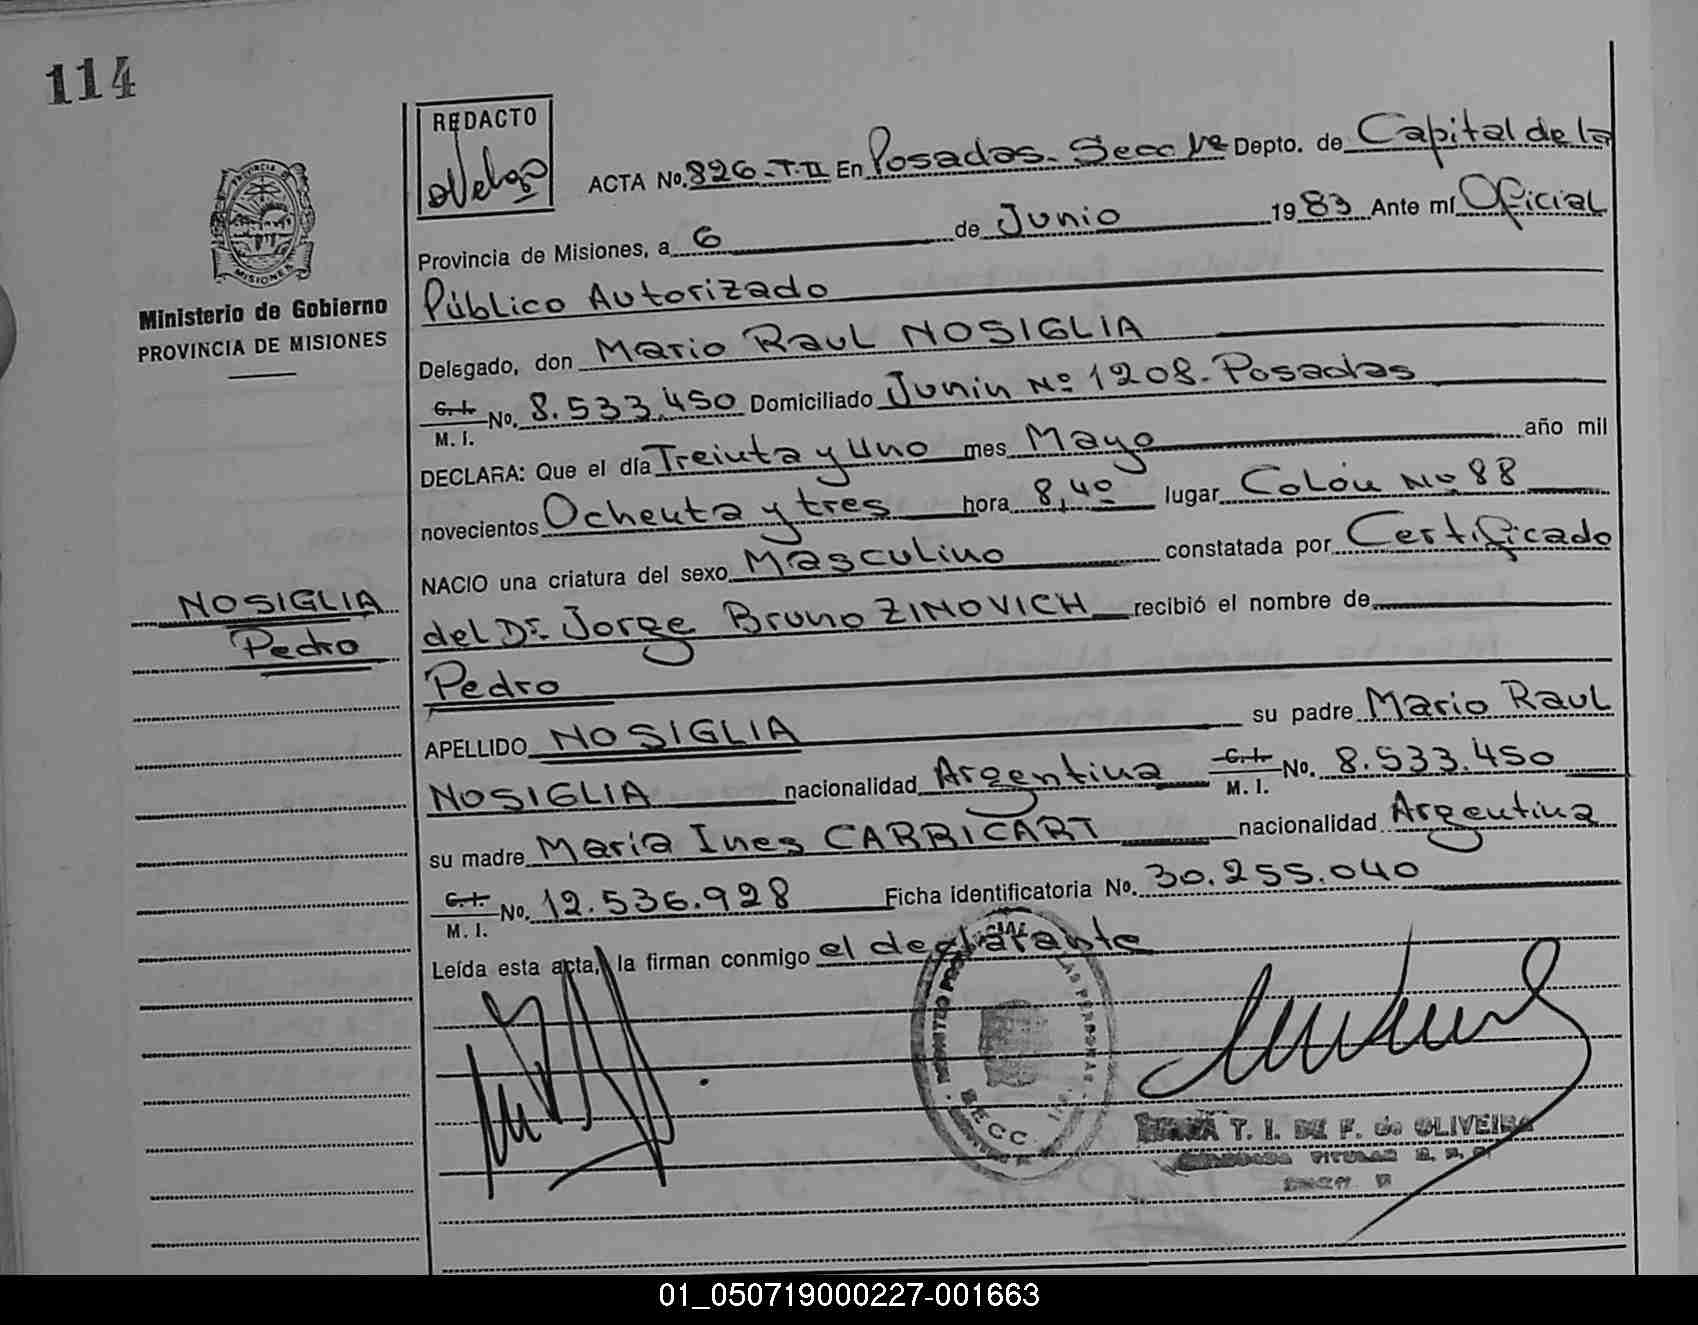 114
REDACTO
ACTA No. 826-T.II En Posadas. Secc 1ra Depto. de Capital de la
Provincia de Misiones, a 6 de Junio 1983 Ante mí Oficial
Público Autorizado
PROVINCIA DE
MISIONES
Ministerio de Gobierno
PROVINCIA DE MISIONES
Delegado, don Mario Raul NOSIGLIA
C.I. M.I. No. 8.533.450 Domiciliado Junin Nº 1208. Posadas
DECLARA: Que el día Treinta y Uno mes Mayo año mil
novecientos Ochenta y tres hora 8,40 lugar Colón Nº 88
NACIO una criatura del sexo Masculino constatada por Certificado
NOSIGLIA
Pedro
del Dr. Jorge Bruno ZINOVICH recibió el nombre de
Pedro
APELLIDO NOSIGLIA su padre Mario Raul
NOSIGLIA nacionalidad Argentina C.I. M.I. No. 8.533.450
su madre Maria Ines CARRICART nacionalidad Argentina
C.I. M.I. No. 12.536.928 Ficha identificatoria No. 30.255.040
Leída esta acta, la firman conmigo el declarante
LAS PERSONAS
SECC.
T. I. DE F. de OLIVEIRA
TITULAR
01_050719000227-001663